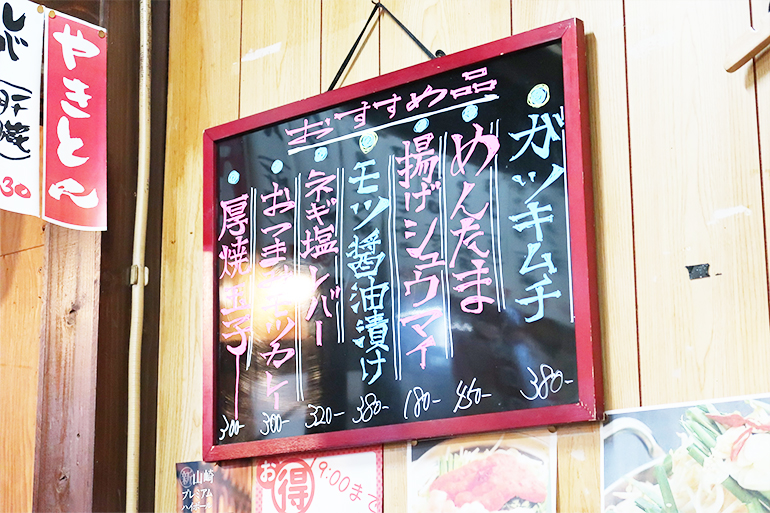 おすすめ品
ガツキムチ 380-
めんたま 450-
揚げシュウマイ 180-
モツ醤油漬け 380-
ネギ塩レバー 320-
厚焼玉子 300-
やきとん
レバ
30
山崎
プレミアム
ハイボール
お得
19:00まで